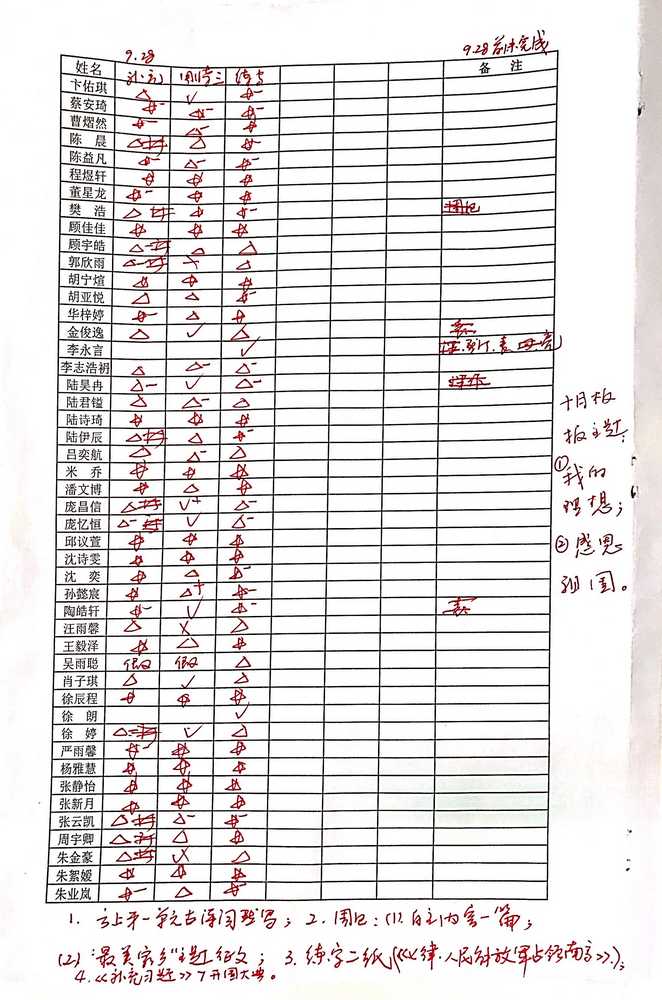 9.28
9.28前未完成
姓名 补充 周记三 练字 备注
卞佑琪 △ ✓ ☆-
蔡安琦 ☆- ☆- ☆-
曹熠然 ☆- △- ☆
陈晨 △ △ ☆-
陈益凡 ☆- △- ☆-
程煜轩 ☆ ☆ ☆
董星龙 ☆- ☆ ☆
樊浩 △ ☆ ☆- 周记
顾佳佳 ☆ ☆ ☆
顾宇皓 △- △ △
郭欣雨 △- ✓ △
胡宁煊 ☆ ☆ ☆
胡亚悦 △ △ ☆-
华梓婷 ☆- △ ☆
金俊逸 △ ✓ △
李永言 ✓
李志浩礽 △ △- △-
陆昊冉 △- ✓ △-
陆君镒 △ △- △
陆诗琦 ☆ ☆ ☆
陆伊辰 △ △ ☆-
吕奕航 △ △- △
米乔 ☆ ☆ ☆
潘文博 ☆ △ ☆
庞昌信 △ ✓+ △-
庞忆恒 △- ✓ △-
邱议萱 ☆ ☆ ☆
沈诗雯 ☆ ☆ ☆
沈奕 ☆ △ △-
孙懿宸 ☆ △+ ☆-
陶皓轩 ☆- ✓ ☆-
汪雨馨 △ X △
王毅泽 ☆ △ ☆
吴雨聪 假 假 △
肖子琪 △ ✓ △
徐辰程 ☆ ☆ ☆
徐朗 ✓
徐婷 △- ✓ △
严雨馨 ☆- ☆ ☆
杨雅慧 ☆ ☆ ☆
张静怡 ☆ ☆ ☆
张新月 ☆ ☆ ☆
张云凯 △ △- ☆-
周宇卿 △ △ ☆
朱金豪 △ X △
朱絮媛 ☆ ☆ ☆
朱业岚 ☆- △ ☆-
十月板
报主题:
①
我的
理想;
②感恩
祖国。
1. 云上第一单元古诗词默写; 2. 周记:(1)自主内容一篇;
(2)"最美家乡"主题征文; 3. 练字二纸(《七律·人民解放军占领南京》);
4.《补充习题》7开国大典。